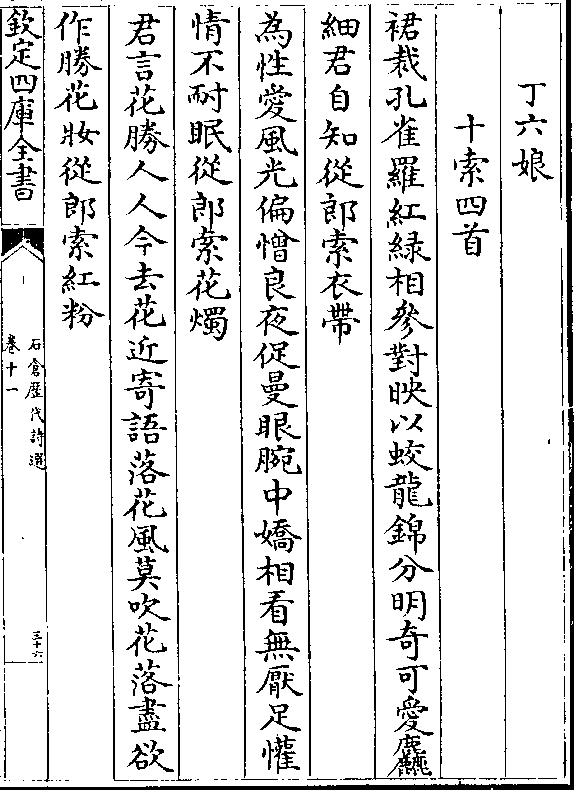 丁六娘
十索四首
裙裁孔雀羅紅緑相參對映以蛟龍錦分明奇可愛麤
細君自知從郎索衣帶
為性愛風光偏憎良夜促曼眼腕中嬌相看無厭足懽
情不耐眠從郎索花燭
君言花勝人人今去花近寄語落花風莫吹花落盡欲
作勝花妝從郎索紅粉
欽定四庫全書
石倉歷代詩選
卷十一
三十六